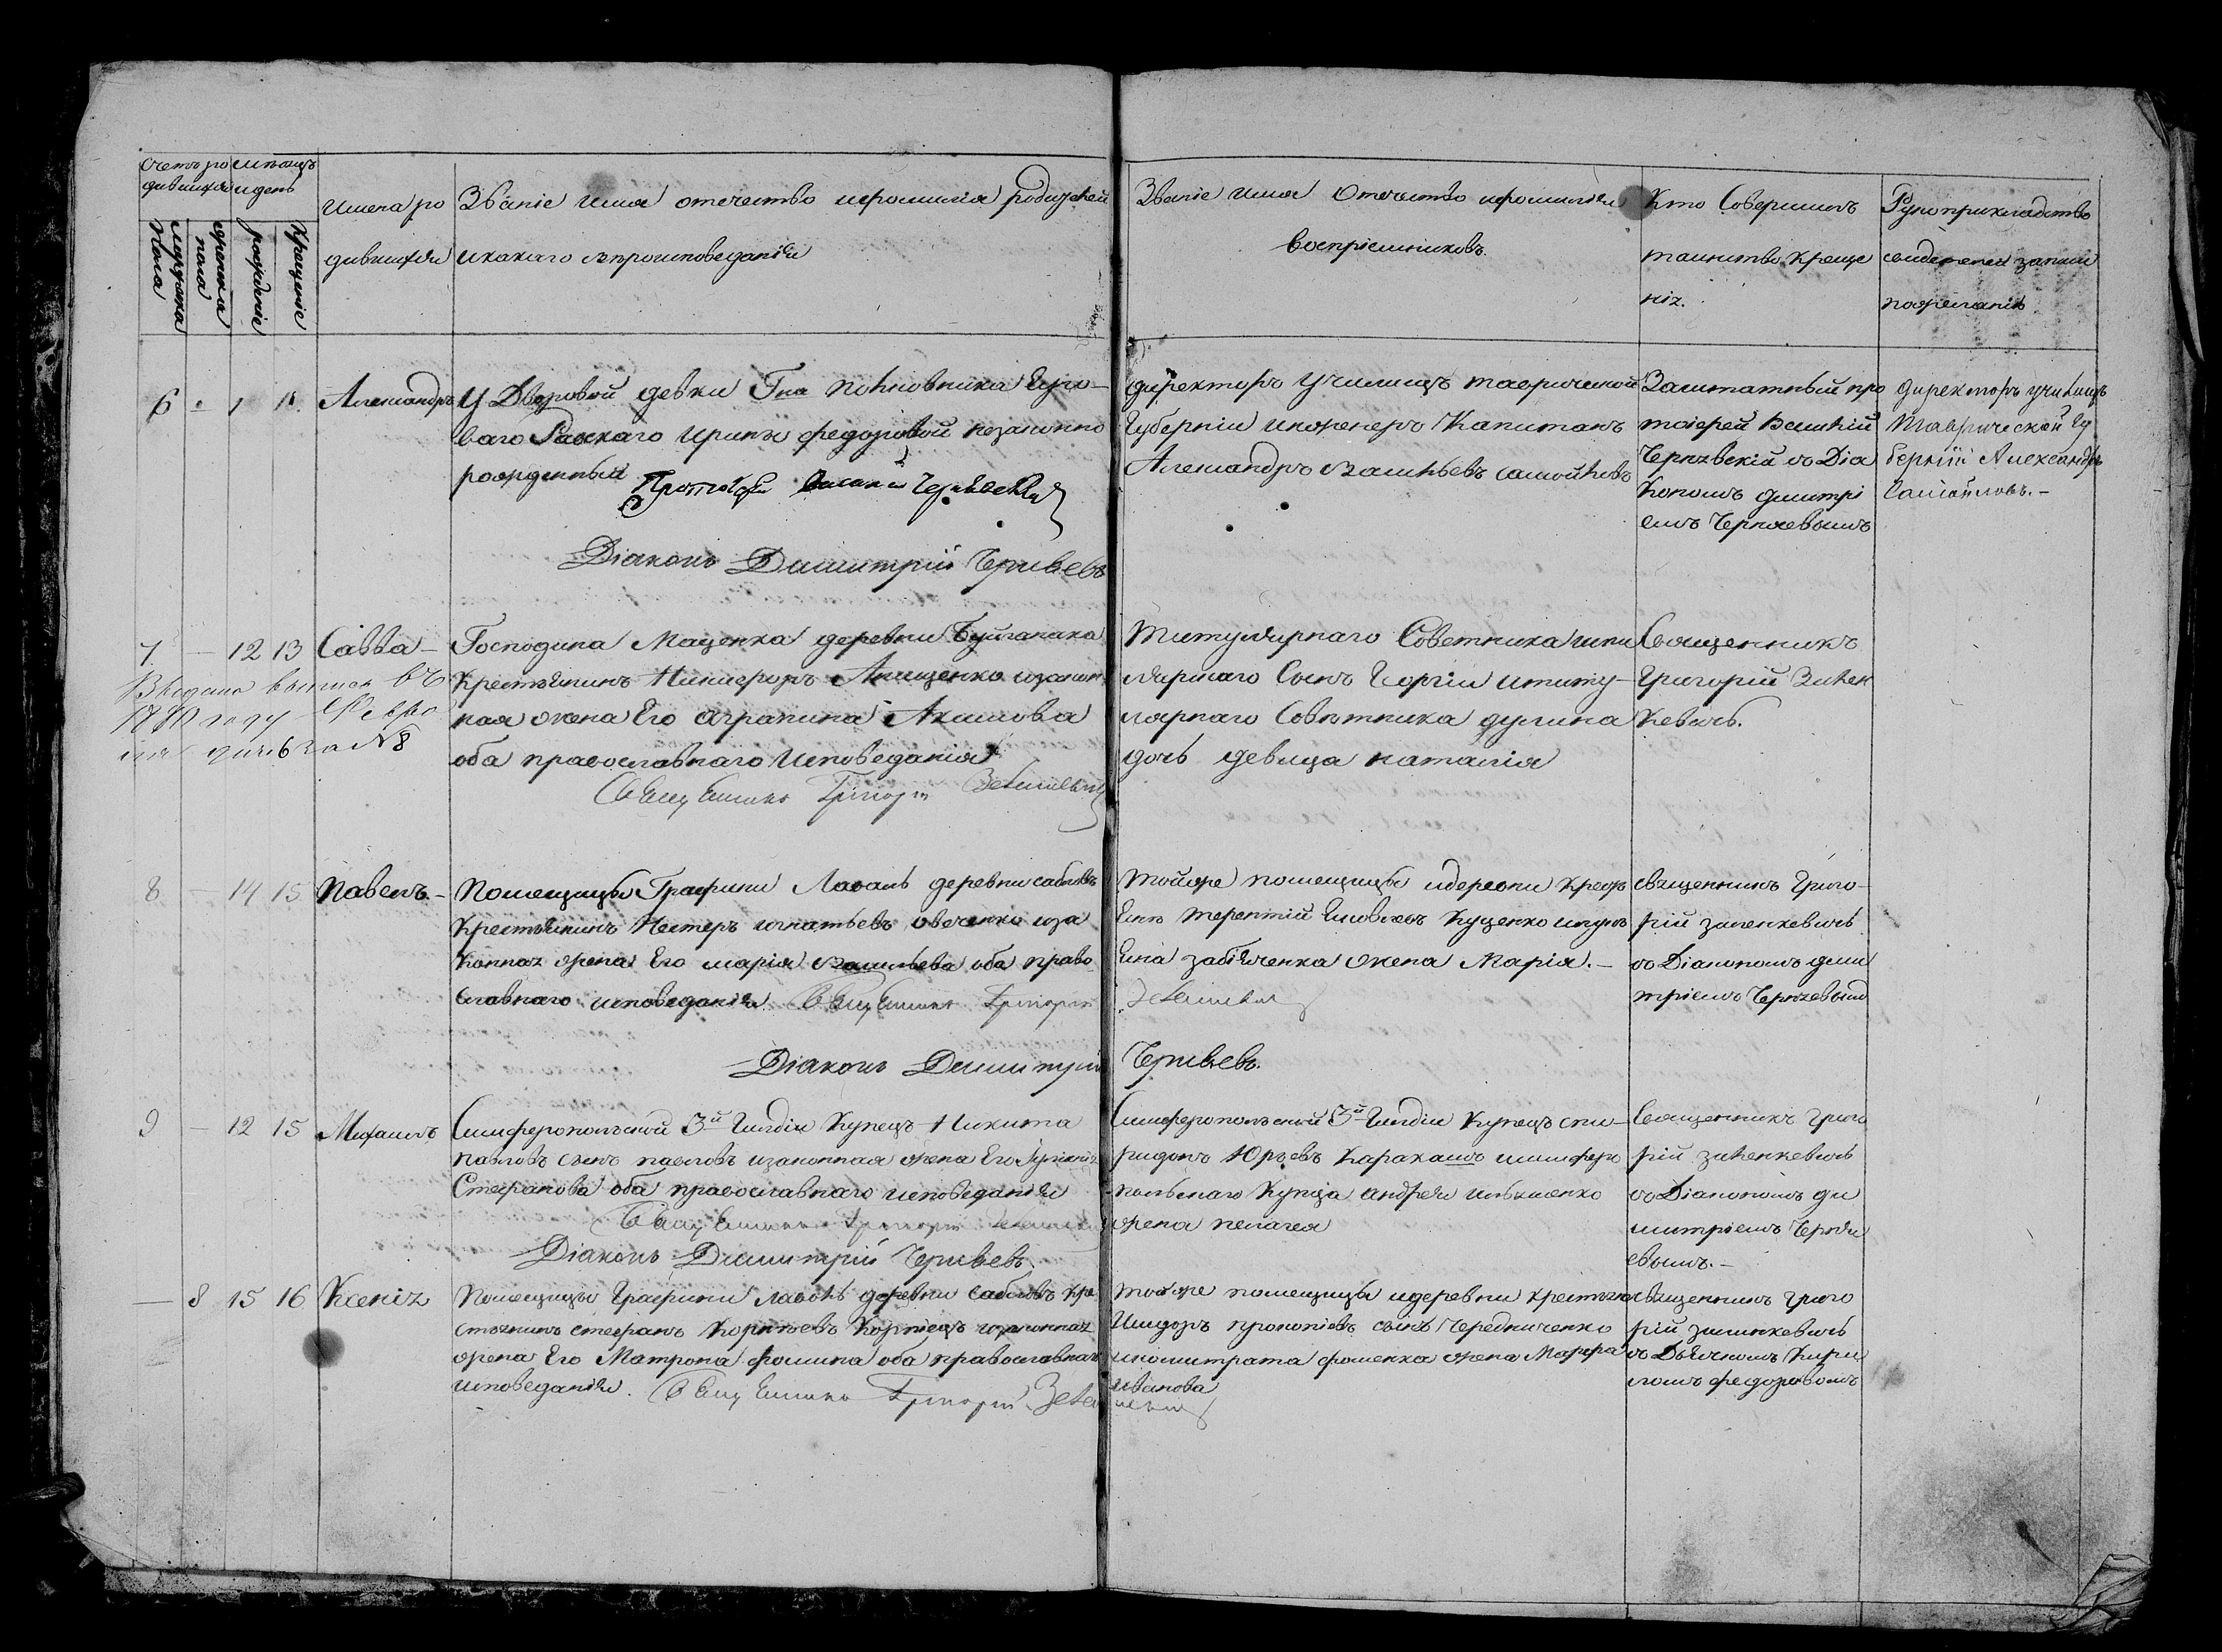 Счетъ ро
дившихся
Мѣсяцъ
и день
мужеска
пола
женска
пола
рожденіе
Крещеніе
Имена ро
дившихся
Званіе имя отечество и фамилія родителей
и какаго вѣроисповеданія
Званіе имя Отечество и фамилія
воспріемниковъ.
Кто Совершилъ
таинство Креще
нія.
Рукоприкладство
свидетелей записи
по желанію
6 - 1
Александръ
У Дворовой девки Гна полковника
ваго Раевскаго Ирины федоровой незаконно
рожденный
Протоіерей Василій Чернявскій
Діаконъ Димитрій Черняевъ
директоръ Училищъ таврической
Губерніи инженеръ Капитанъ
Александръ Васильевъ Самойловъ
Заштатный про
тоіерей Василій
Чернявскій съ Діа
кономъ дмитрі
емъ Черняевымъ
Директоръ училищъ
Таврической Гу
берніи Александръ
Самойловъ. -
7. - 12 13 Савва -
году Февра
ля дня № 8
Господина Маценка деревни Булганака
Крестьянинъ Никифоръ Анищенко и закон
ная жена Его Агрипина Акимова
оба православнаго Исповеданія
Священникъ Григорій
Титулярнаго Советника
лярнаго Сынъ Георгій и титу-
лярнаго Совѣтника дулина
дочь девица наталія
Священникъ
Григорій Зилен
кевичь.
8 - 14 15 Павелъ. -
Помещицы Графини Лаваль деревни Сабловъ
Крестьянинъ Нестеръ игнатьевъ овеченко и за
конная жена Его марія Васильева оба право
славнаго исповеданія. Священникъ Григорій
Діаконъ Димитрій
Тойже помещицы и деревни Крест
Янъ терентій Яковлевъ Куценко
жена Марія. -
Черняевъ.
священникъ Григо-
рій зиленкевичь
съ Діакономъ дми
тріемъ Черняевымъ
9 - 12 15 Михаилъ
Симферопольской 3й Гильдіи Купецъ Никита
павловъ сынъ павловъ и законная жена Его
Стефанова оба православнаго исповеданія
Священникъ Григорій
Діаконъ Димитрій Черняевъ.
Симферопольской 3й Гильдіи Купецъ спи-
ридонъ Юрьевъ Каракашъ и симферо
польскаго Купца андрея
жена пелагея
Священникъ Григо
рій зиленкевичь
съ Діакономъ ди
митріемъ Черня
евымъ. -
- 8 15 16 Ксенія
Помещицы Графини лаваль деревни Сабловъ Кре
стьянинъ стефанъ Корнѣевъ Корніецъ и законная
жена Его Матрона фомина оба православнаго
исповеданія. Священникъ Григорій
Тойже помещицы и деревни крестьяне
Исидоръ прокопіевъ сынъ Чередниченко
фоменка жена Марфа
иванова
священникъ Григо
рій зиленкевичь
съ Дьячкомъ Кири
ломъ федоровымъ